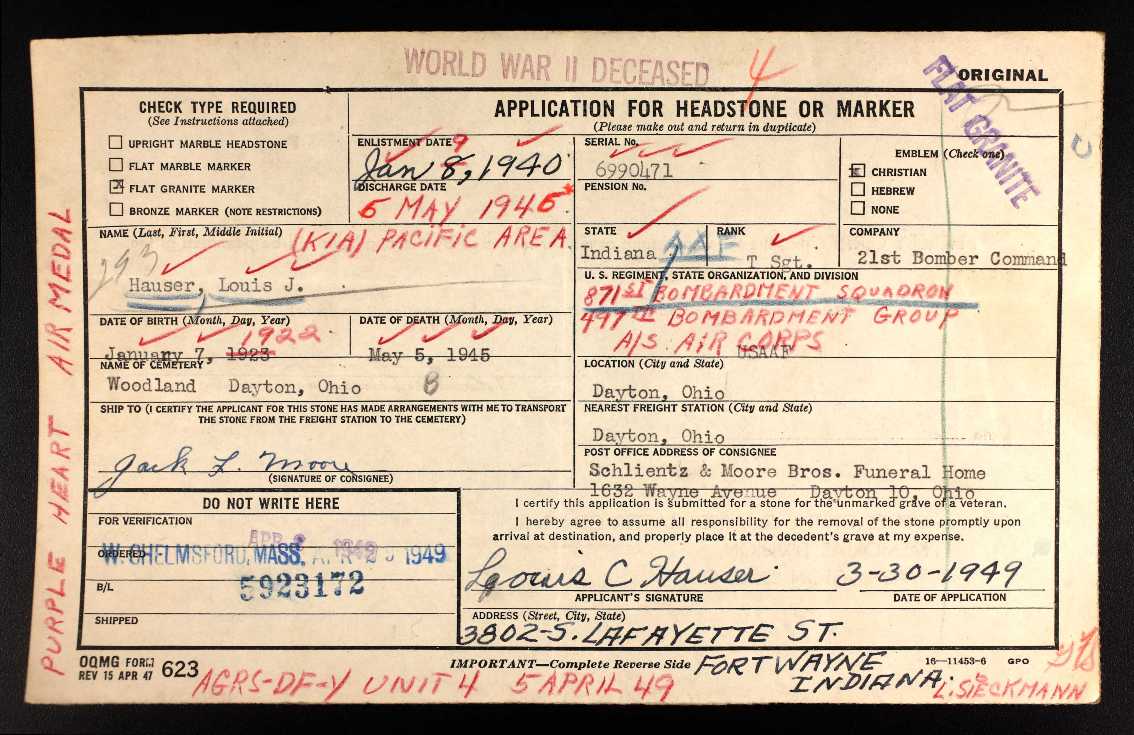 WORLD WAR II DECEASED 4
ORIGINAL
FLAT GRANITE
CHECK TYPE REQUIRED
(See Instructions attached)
UPRIGHT MARBLE HEADSTONE
FLAT MARBLE MARKER
X FLAT GRANITE MARKER
BRONZE MARKER (NOTE RESTRICTIONS)
APPLICATION FOR HEADSTONE OR MARKER
(Please make out and return in duplicate)
ENLISTMENT DATE 9
Jan 8, 1940
DISCHARGE DATE
5 MAY 1945*
SERIAL No.
6990471
PENSION No.
EMBLEM (Check one)
X CHRISTIAN
HEBREW
NONE
NAME (Last, First, Middle Initial) (KIA) PACIFIC AREA
293
Hauser, Louis J.
STATE
Indiana AAF
RANK
T Sgt.
COMPANY
21st Bomber Command
U. S. REGIMENT, STATE ORGANIZATION, AND DIVISION
871 ST BOMBARDMENT SQUADRON
497 TH BOMBARDMENT GROUP
A/S AIR CORPS
USAAF
DATE OF BIRTH (Month, Day, Year)
1922
January 7, 1923
DATE OF DEATH (Month, Day, Year)
May 5, 1945
NAME OF CEMETERY
Woodland Dayton, Ohio B
LOCATION (City and State)
Dayton, Ohio
SHIP TO (I CERTIFY THE APPLICANT FOR THIS STONE HAS MADE ARRANGEMENTS WITH ME TO TRANSPORT
THE STONE FROM THE FREIGHT STATION TO THE CEMETERY)
Jack L. Moore
(SIGNATURE OF CONSIGNEE)
NEAREST FREIGHT STATION (City and State)
Dayton, Ohio
POST OFFICE ADDRESS OF CONSIGNEE
Schlientz & Moore Bros. Funeral Home
1632 Wayne Avenue Dayton 10, Ohio
DO NOT WRITE HERE
FOR VERIFICATION
ORDERED
W. CHELMSFORD, MASS. 1949
B/L
5923172
SHIPPED
I certify this application is submitted for a stone for the unmarked grave of a veteran.
I hereby agree to assume all responsibility for the removal of the stone promptly upon
arrival at destination, and properly place it at the decedent's grave at my expense.
Louis C Hauser 3-30-1949
APPLICANT'S SIGNATURE DATE OF APPLICATION
ADDRESS (Street, City, State)
3802-S. LAFAYETTE ST.
FORT WAYNE
INDIANA.
OQMG FORM
REV 15 APR 47 623
IMPORTANT—Complete Reverse Side
16—11453-6 GPO
AGRS-DF-Y UNIT 4 5 APRIL 49
L. SIECKMANN
PURPLE HEART AIR MEDAL